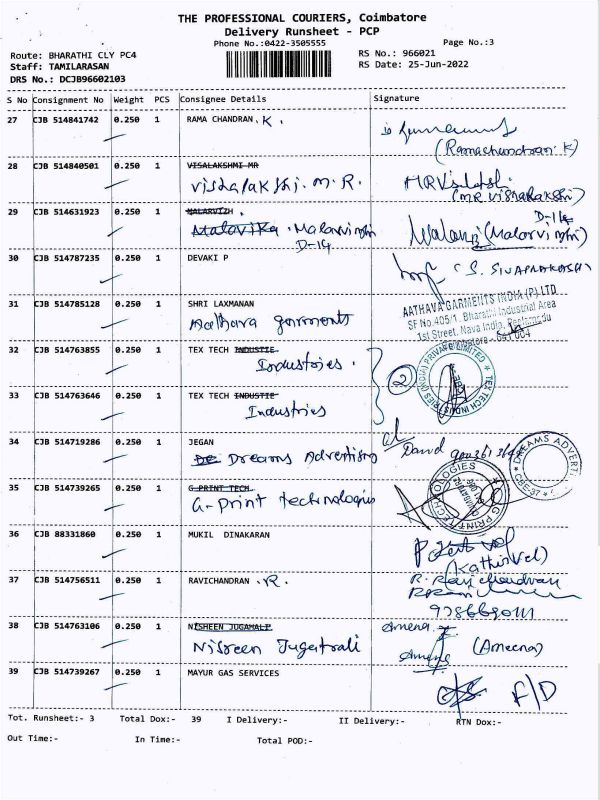 THE PROFESSIONAL COURIERS, Coimbatore
Delivery Runsheet - PCP
Phone No.:0422-3505555
Page No.:3
Route: BHARATHI CLY PC4
RS No.: 966021
Staff: TAMILARASAN
RS Date: 25-Jun-2022
DRS No.: DCJB96602103
S No Consignment No Weight PCS Consignee Details Signature
27 CJB 514841742 0.250 1 RAMA CHANDRAN . K .
(Ramachandran. K)
28 CJB 514840501 0.250 1 VISALAKSHMI MR
vishalakshi. M. R.
(MR Vishalakshi)
29 CJB 514631923 0.250 1 MALARVIZH
Malavika . Malarvizhi
D-14
D-14
(Malarvizhi)
30 CJB 514787235 0.250 1 DEVAKI P
(S. SIVAPRAKASH)
31 CJB 514785128 0.250 1 SHRI LAXMANAN
Aathava garments
AATHAVA GARMENTS INDIA (P) LTD
SF No.405/1, Bharathi Industrial Area
1st Street, Nava India,
32 CJB 514763855 0.250 1 TEX TECH INDUSTIE
Industries .
2
33 CJB 514763646 0.250 1 TEX TECH INDUSTIE
Industries
TEX TECH INDUSTRIES (INDIA) PRIVATE LIMITED
34 CJB 514719286 0.250 1 JEGAN
De Dreams Advertising
David
DREAMS ADVERTI
35 CJB 514739265 0.250 1 G PRINT TECH
G-Print technologies
G PRINT TECHNOLOGIES
36 CJB 88331860 0.250 1 MUKIL DINAKARAN
(Kathirvel)
37 CJB 514756511 0.250 1 RAVICHANDRAN . R.
R. Ravichandran
38 CJB 514763106 0.250 1 NISHEEN JUGAMALI
Nisreen Jugatrali
Amena
(Ameena)
39 CJB 514739267 0.250 1 MAYUR GAS SERVICES
F/D
Tot. Runsheet:- 3 Total Dox:- 39 I Delivery:- II Delivery:- RTN Dox:-
Out Time:- In Time:- Total POD:-